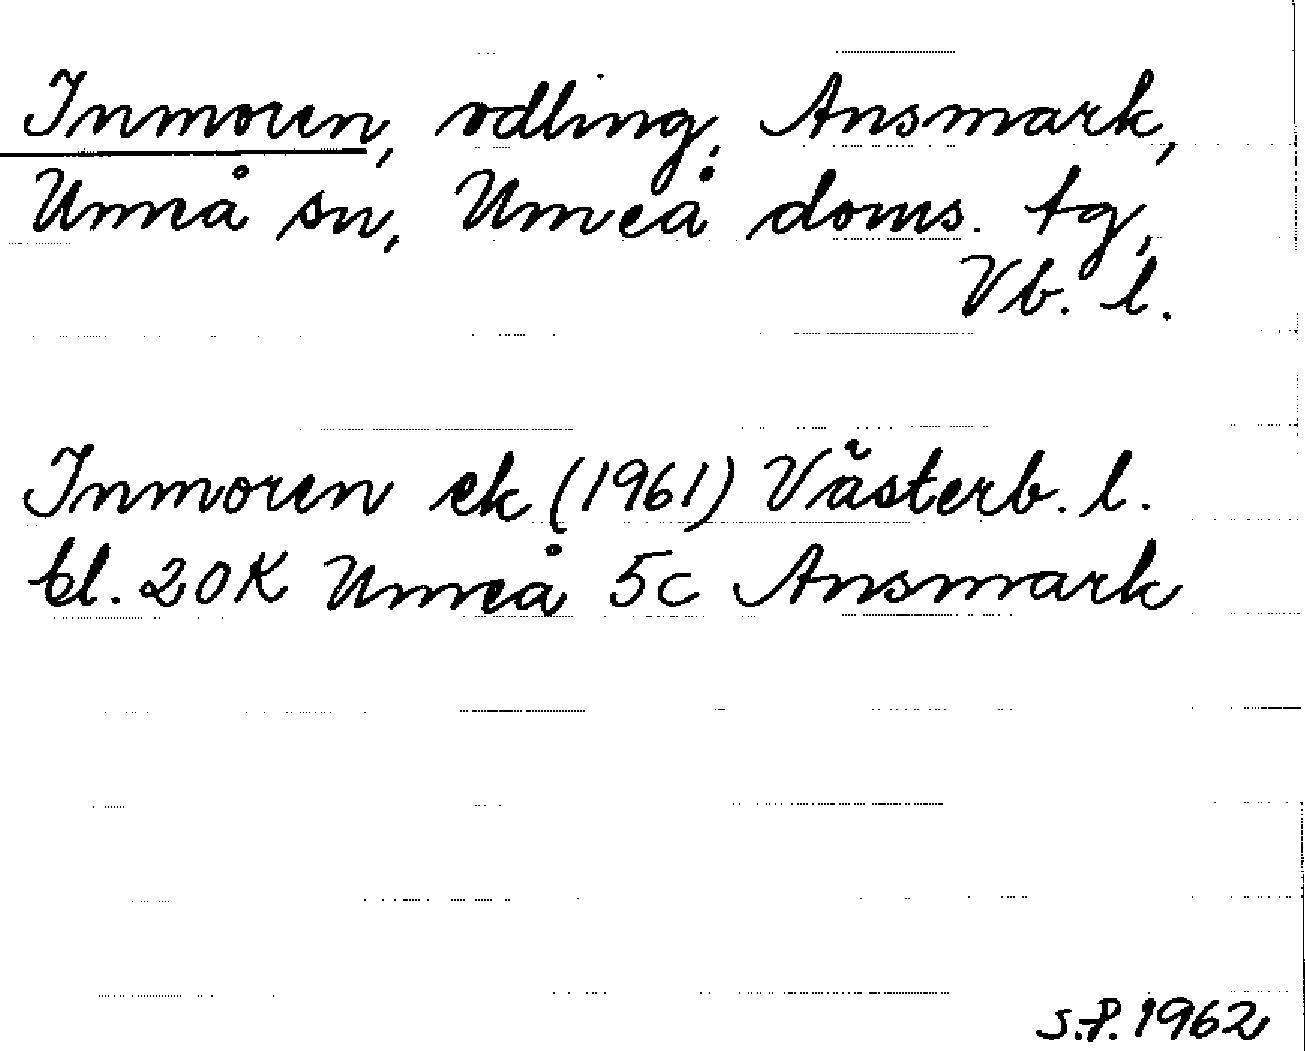 Inmoren, odling, Ansmark,
Umeå sn, Umeå doms. tg,
Vb. l.
Inmoren ek (1961) Västerb. l.
bl. 20K Umeå 5c Ansmark
S.P. 1962